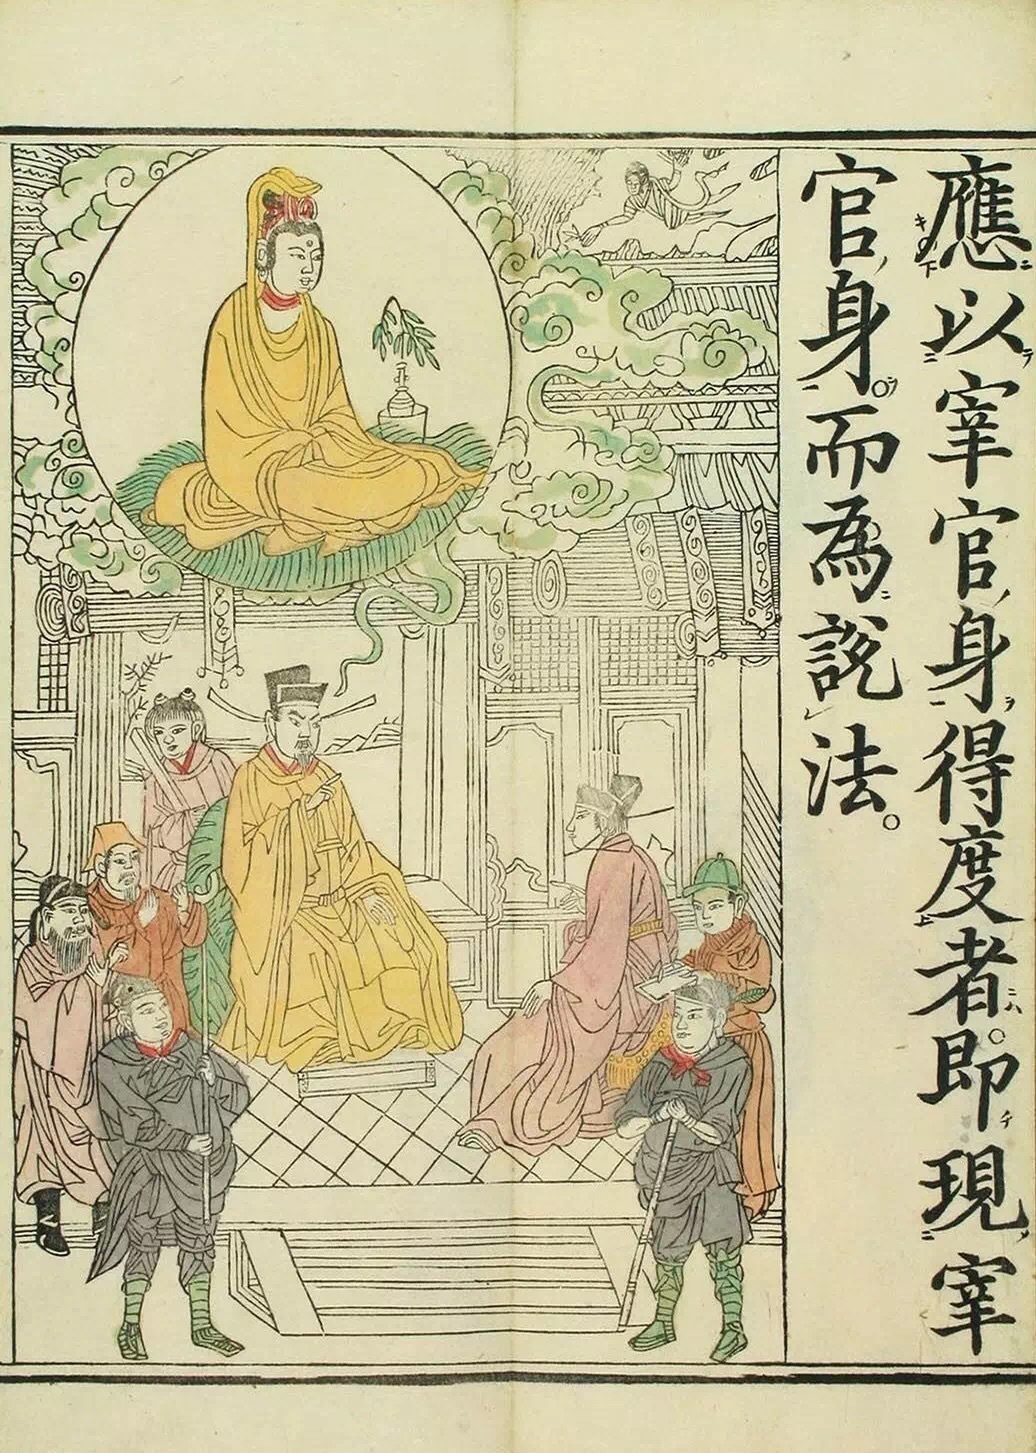 應以宰官身得度者。即現宰
官身。而為說法。